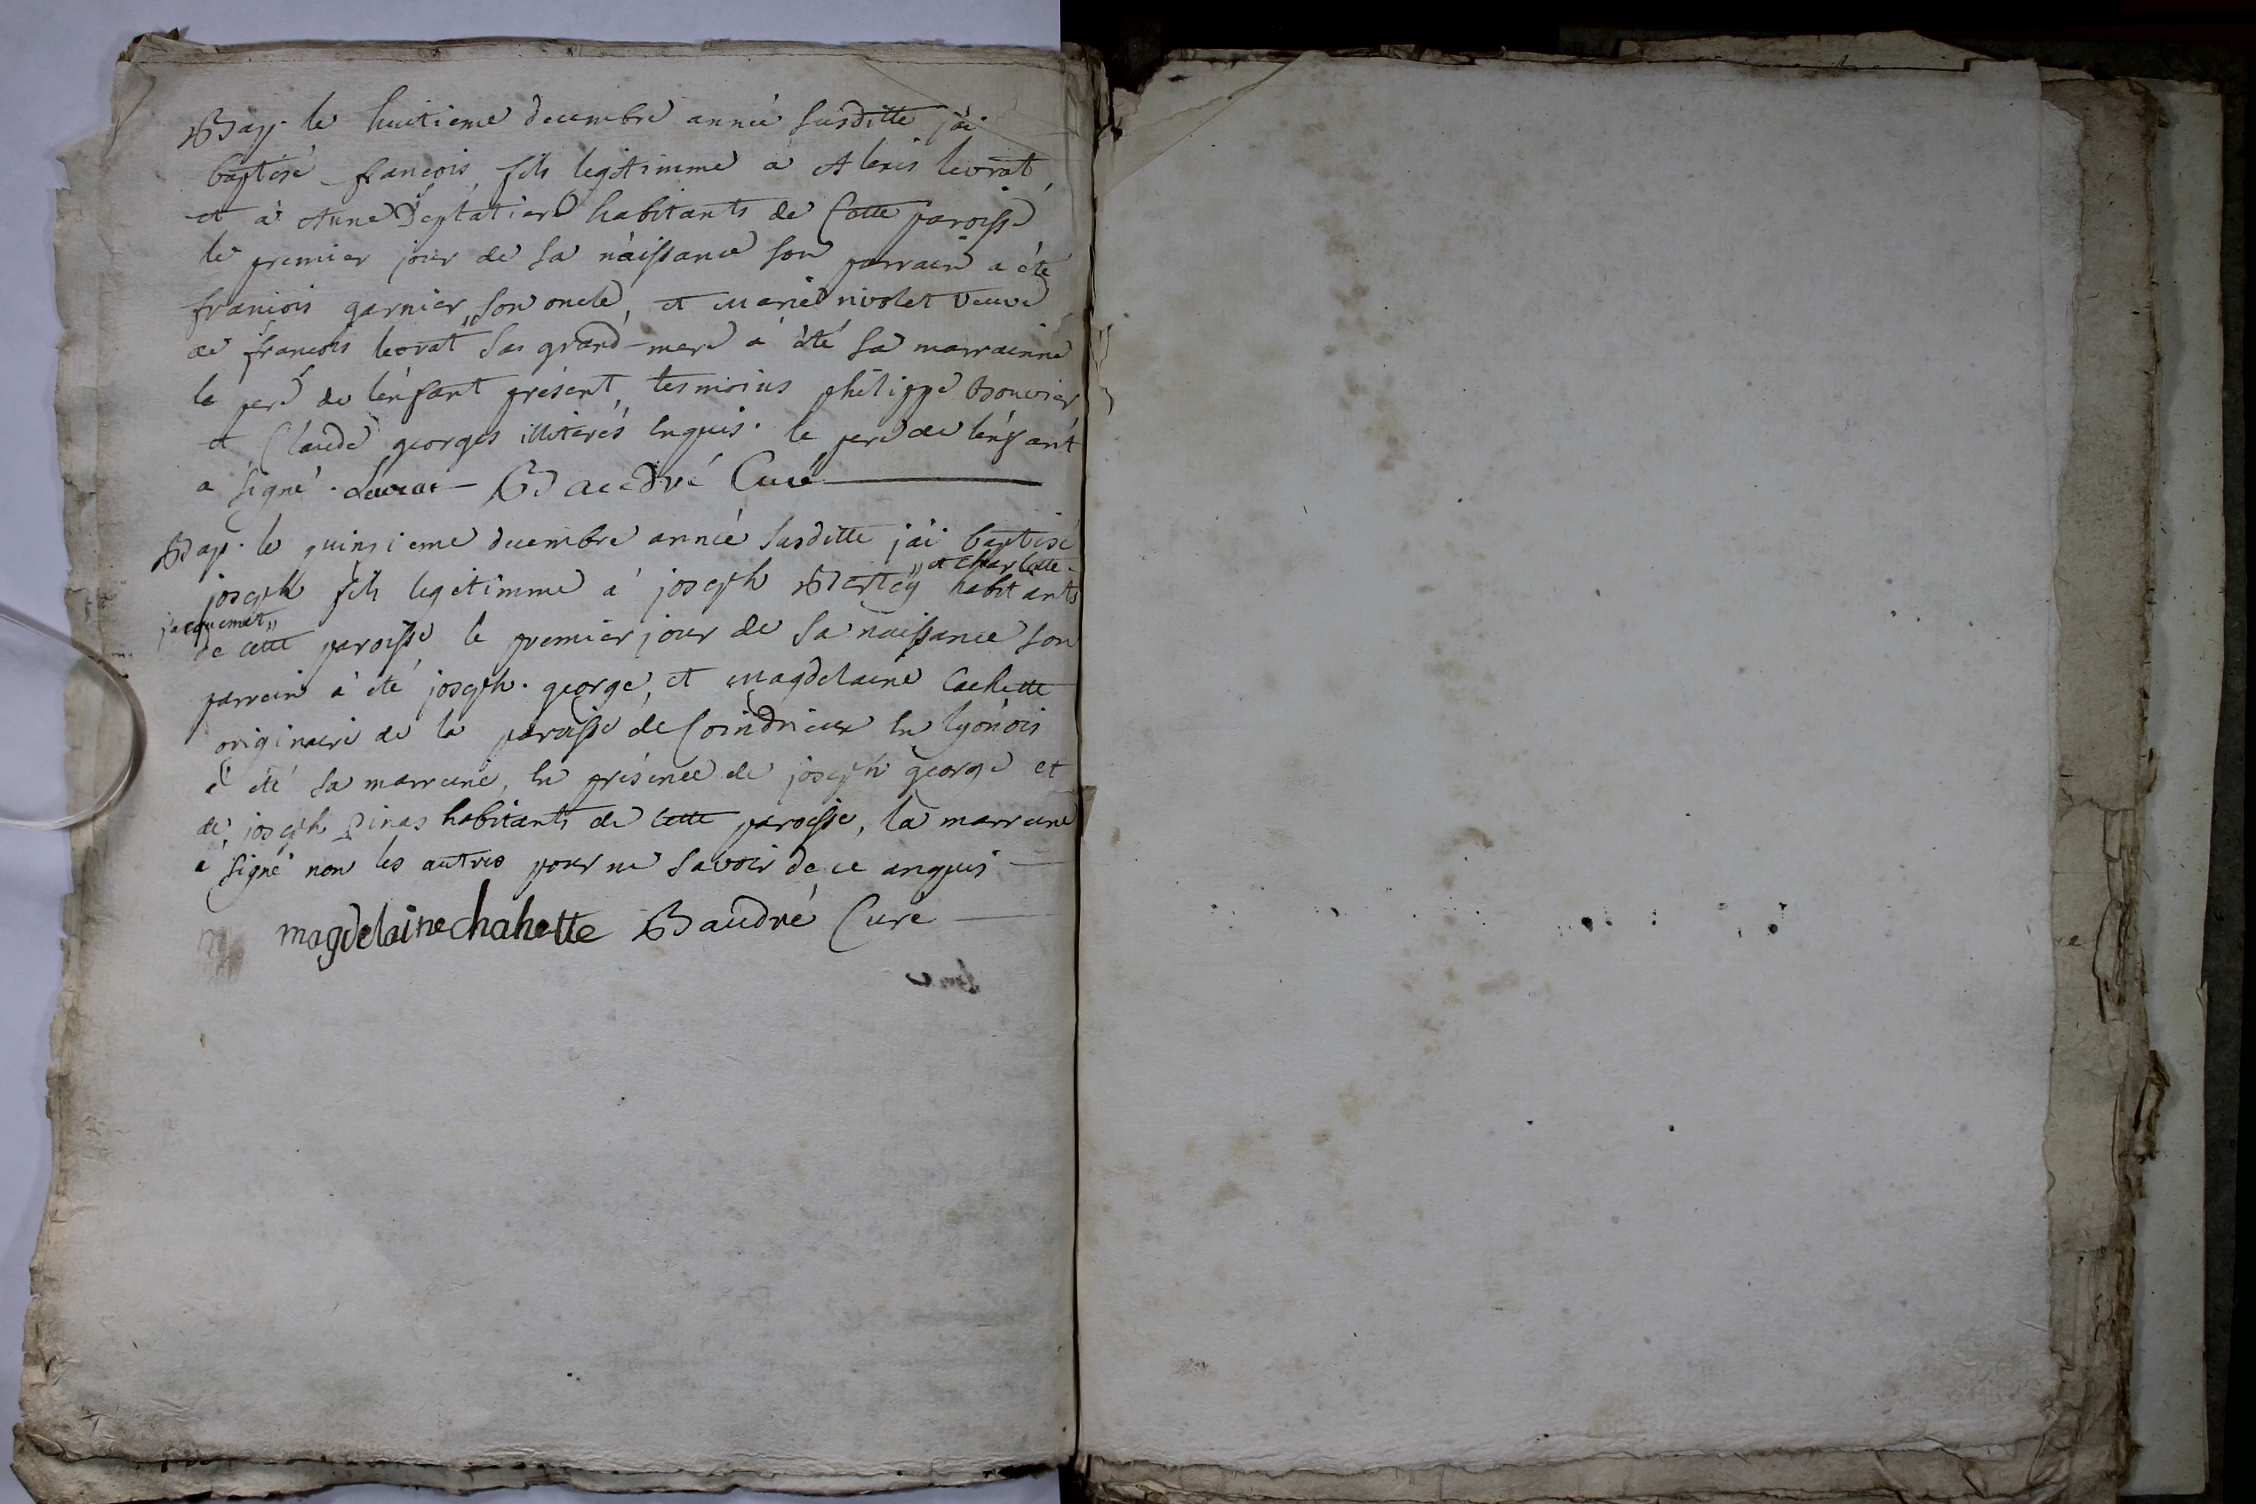 Bap. le huitieme decembre année susditte j'ai
baptisé françois, fils legitimme à Alexis levrat,
et à Anne habitants de Cette paroisse
le premier jour de sa náissance son parrain a été
francois garnier, son oncle, et marie nivolet veuve
de francois levrat sa grand-mere a été sa marrainne
le pere de l'énfant présent, tesmoins philippe Bouvier
et Claude georges illiterés enquis. le pere de l'énfant
a signé. Levrat - Baudré Curé
Bap. le quinsieme decembre année susditte j'ai baptisé
joseph fils legitimme à joseph Bertey ,, et Charlotte
jacquemet,, habitants
de cette paroisse le premier jour de sa naissance son
parrain à été joseph. george, et magdelaine Cachette
originaire de la paroisse de Coindrieux en lyonois
à été sa marreine, en présence de joseph george et
de joseph Pinas habitants de cette paroisse, la marreine
à signé non les autres pour ne savoir de ce anquis
magdelaine chahette Baudré Curé